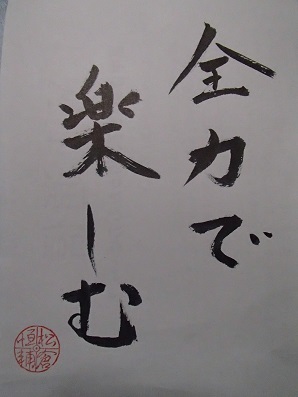 全力で
楽しむ